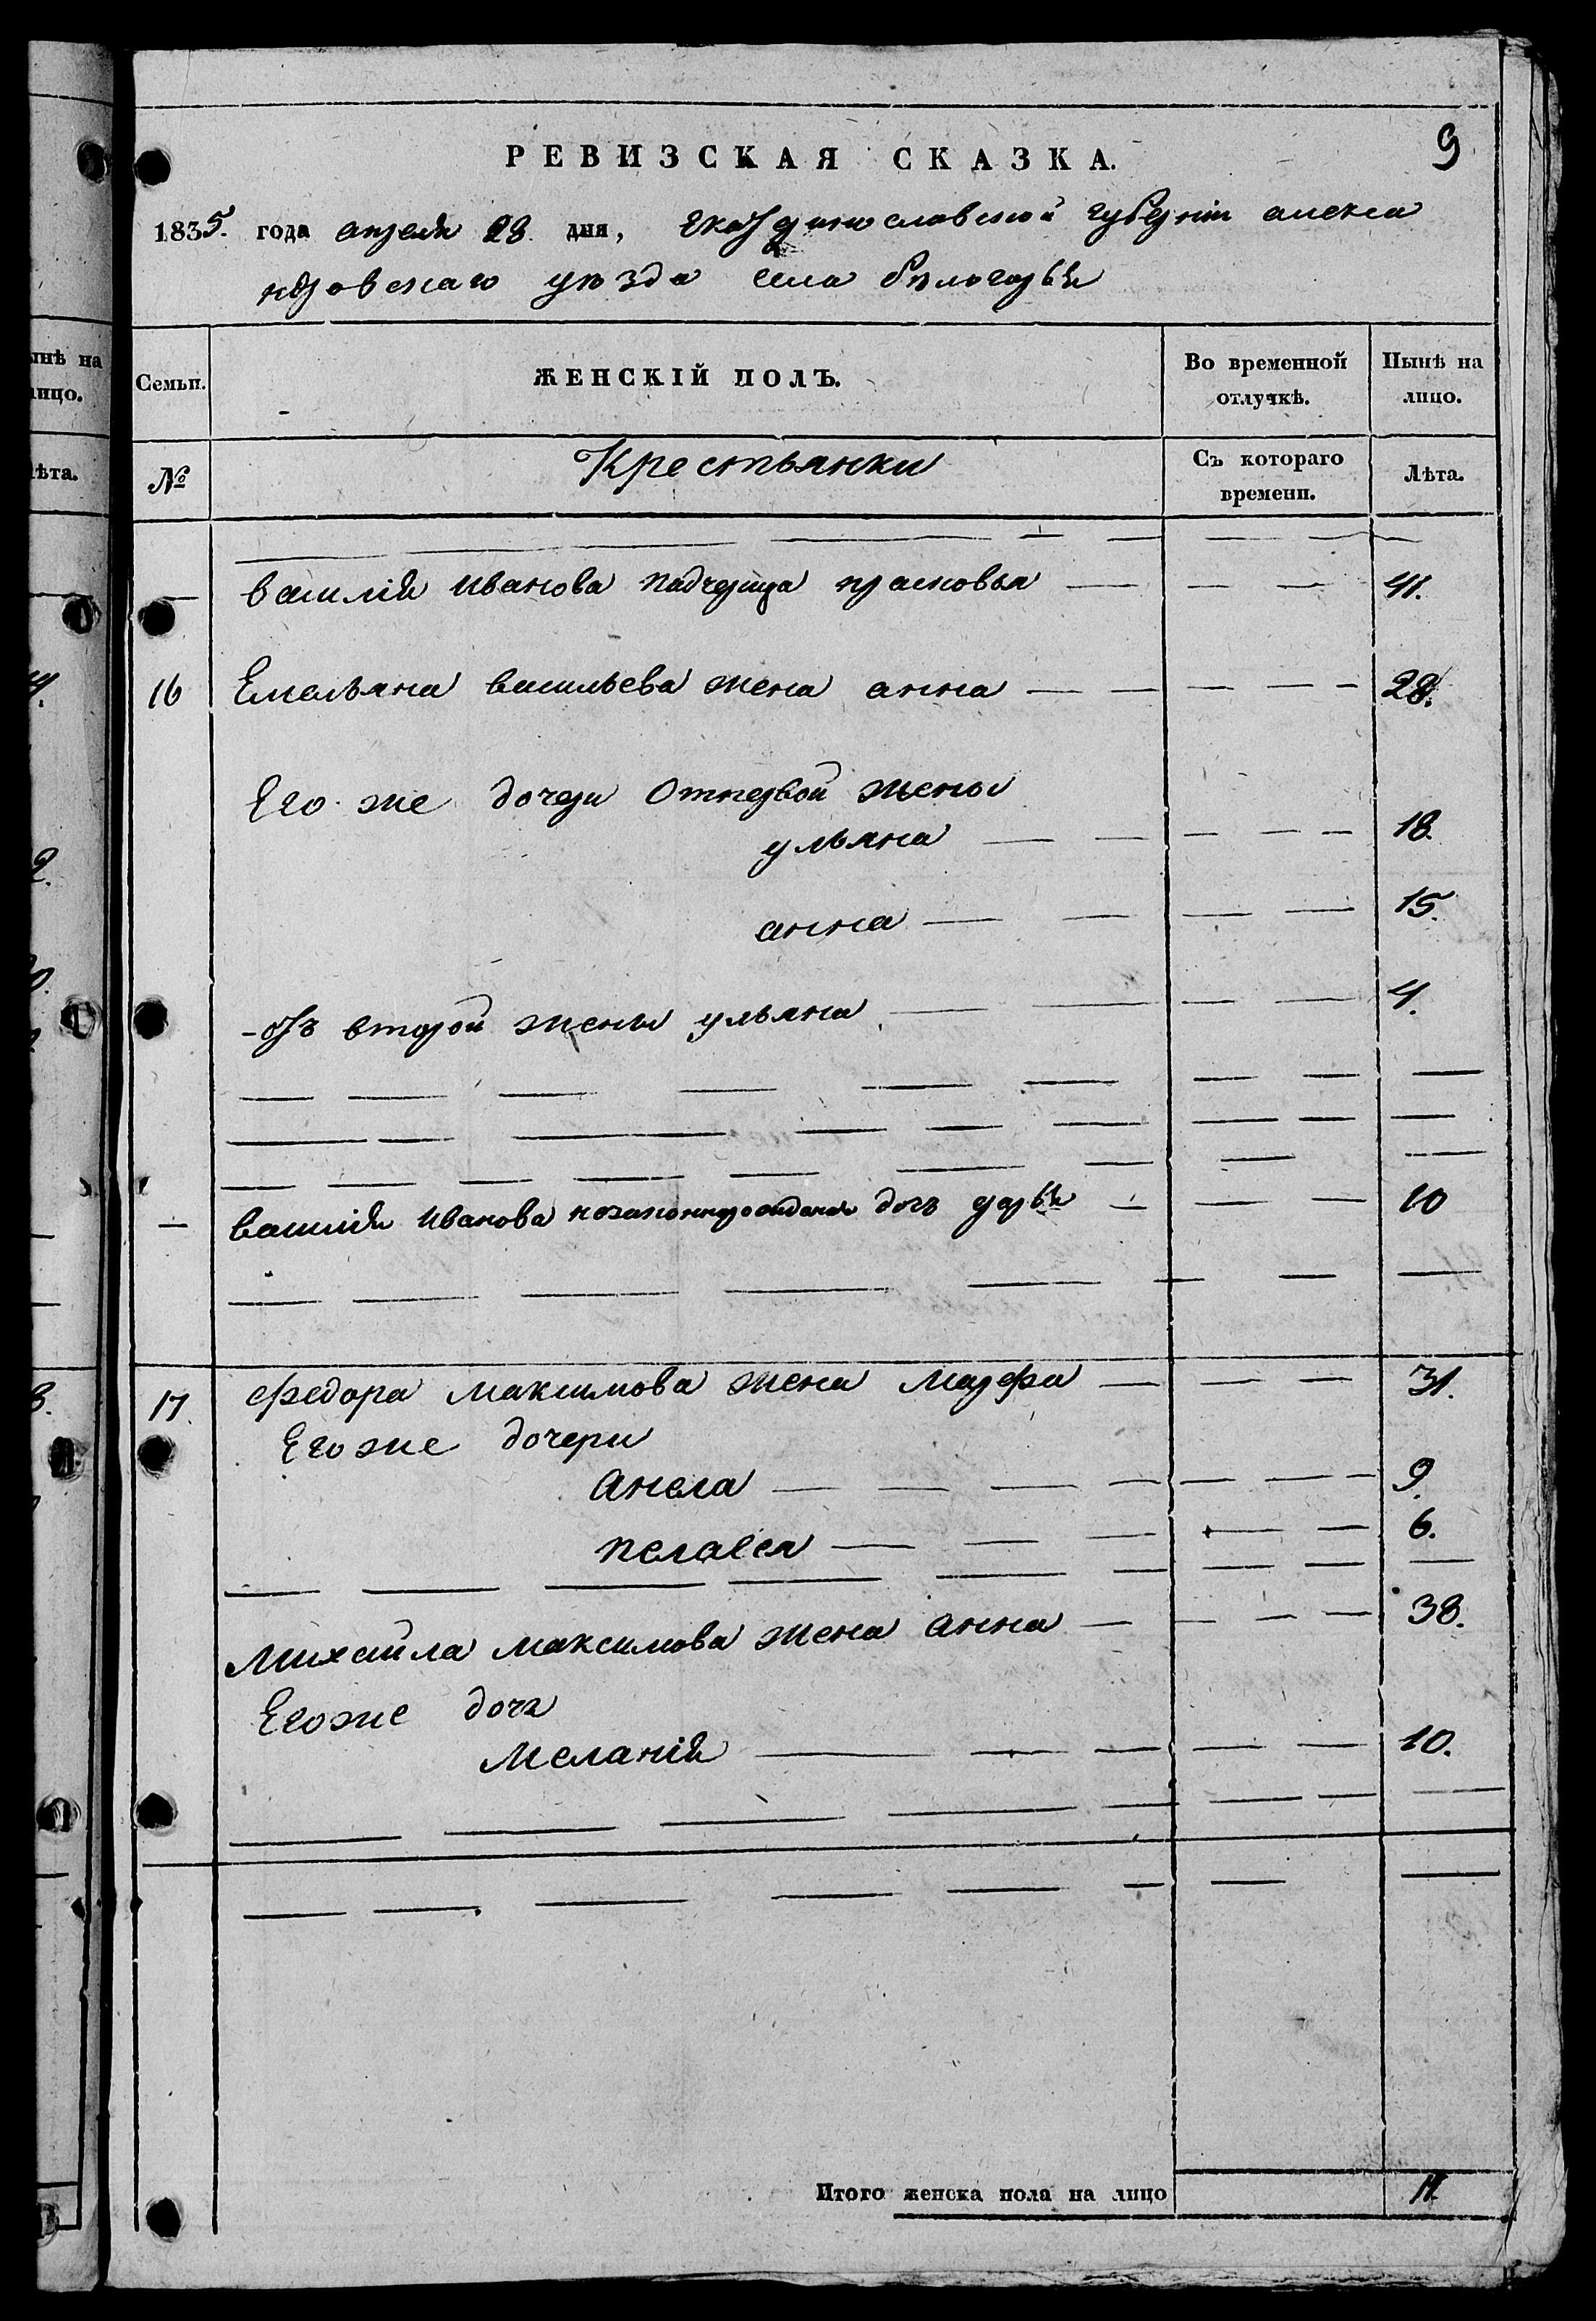 9
РЕВИЗСКАЯ СКАЗКА.
1835. года апреля 28 дня, Екатеринославской губернии алекса
ндровскаго уѣзда села бѣлогорья
Семьи. ЖЕНСКІЙ ПОЛЪ. Во временной отлучкѣ. Нынѣ на лицо.
№ Крестьянки Съ котораго времени. Лѣта.
— василія Иванова падчерица прасковья — — — — 41.
16 Емельяна васильева жена анна — — — — — 28.
Его же дочери Отпервой жены
ульяна — — — — — 18.
анна — — — — 15.
-отъ второй жены ульяна — — — — 4.
— василія Иванова незаконнорожданая дочь дарья — — — — 10
17. Федора Максимова жена Марфа — — — — 31.
Его же дочери
Анела — — — — — — — 9.
пелагея — — — — — 6.
Михайла Максимова жена Анна — — — — 38.
Его же дочь
Меланія — — — — — — 10.
Итого женска пола на лицо 11.
ынѣ на
лицо.
лѣта.
4.
2.